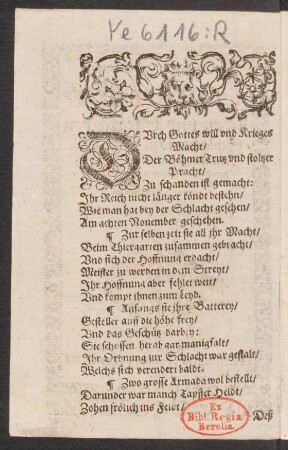 Ye 6116:R
DUrch Gottes will vnd Krieges
Macht/
Der Böhmer Trutz vnd stoltzer
Pracht/
Zu schanden ist gemacht:
Ihr Reich nicht länger köndt bestehn/
Wie man hat bey der Schlacht gesehen/
Am achten Nouember geschehen.
¶ Zur selben zeit sie all jhr Macht/
Beim Thiergarten zusammen gebracht/
Vnd sich der Hoffnung erdacht/
Meister zu werden in dem Streyt/
Ihr Hoffnung aber fehlet weit/
Vnd kompt ihnen zum Leyd.
¶ Anfangs sie jhre Batterey/
Gestellet auff die höhe frey/
Vnd das Geschütz darbey:
Sie schossen herab gar manigfalt/
Ihr Ordnung zur Schlacht war gestalt/
Welchs sich verendert baldt.
¶ Zwo grosse Armada wol bestellt/
Darunder war manch Tapffer Heldt/
Zohen frölich ins Feldt/
Deß
Ex
Bibl. Regia
Berolin.